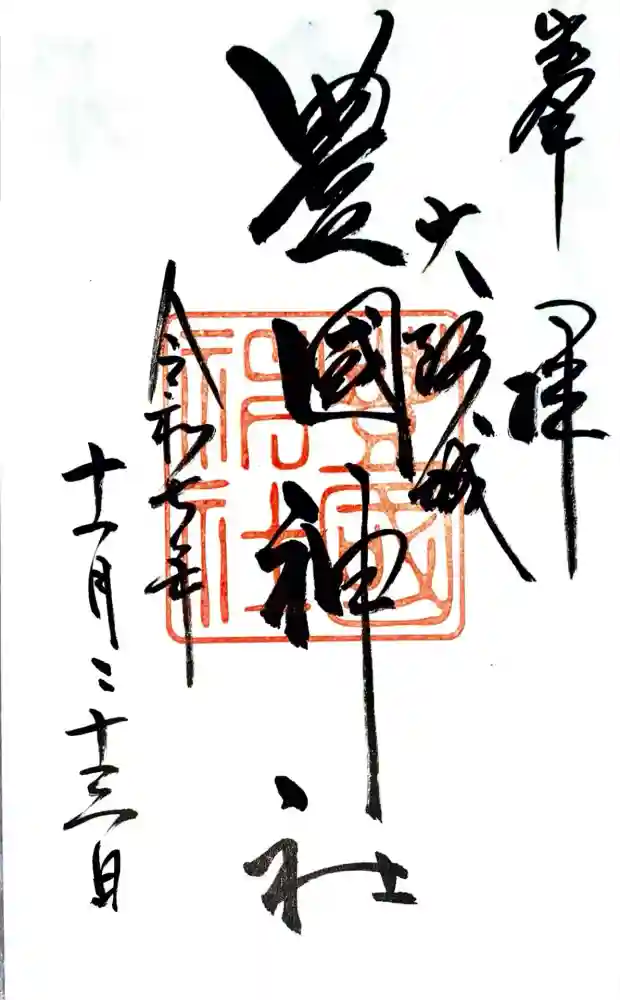 奉拝
大阪城
豊國神社
令和七年
十一月二十三日
豐國
神社